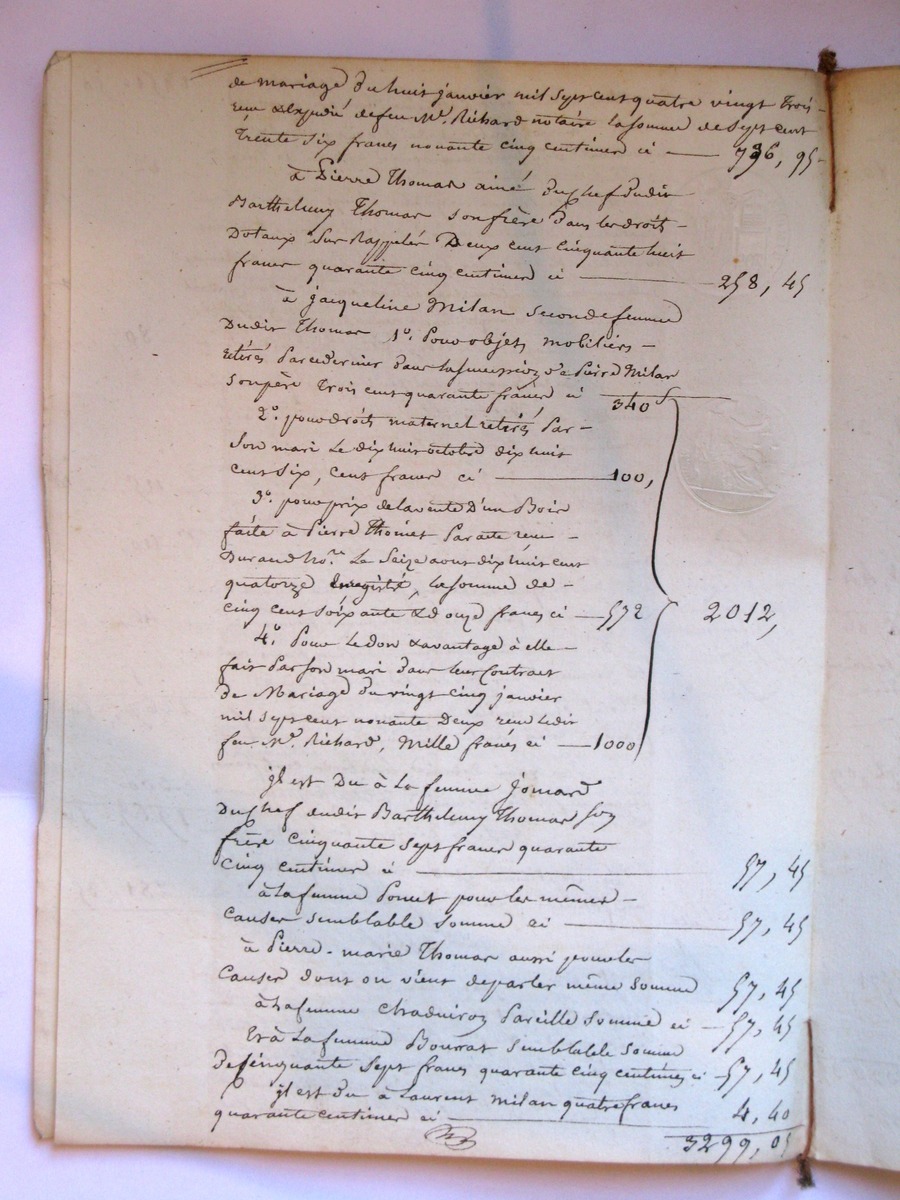 de mariage du huit janvier mil sept cent quatre vingt trois -
reçu & expédié de feu Me. Richard notaire la somme de sept cent
trente six francs nonante cinq centimes ci — 736, 95
à Pierre Thomas ainé du chef dudit
Barthelemy Thomas son frère dans les droits -
Dotaux sus rappelés Deux cent cinquante huit
francs quarante cinq centimes ci — 258, 45
à jacqueline Milan seconde femme
dudit Thomas 1o. Pour objets mobiliers -
retirés par ce dernier dans la succession de Pierre Milan
son père trois cent quarante francs ci 340
2o. pour droits maternel retirés par -
son mari le dix huit octobre dix huit
cent six, cent francs ci — 100,
3o. pour prix de la vente d'un Bois
faite à Pierre Thomas par acte reçu -
Durand Nore. le seize aout dix huit cent
quatorze enregistré, la somme de -
cinq cent soixante & douze francs ci — 572
2012,
4o. Pour le don & avantage à elle -
fait par son mari dans leur contrat
de Mariage du vingt cinq janvier
mil sept cent nonante deux reçu ledit
feu Me. Richard, Mille francs ci — 1000
il est du à la femme Jomard
du chef dudit Barthelemy Thomas son
frère cinquante sept francs quarante
cinq centimes ci — 57, 45
à la femme Poncet pour les mêmes -
causes semblable somme ci — 57, 45
à Pierre-marie Thomas aussi pour les
causes dont on vient de parler même somme 57, 45
à la femme pareille somme ci — 57, 45
et à la femme Bourrat semblable somme
de cinquante sept francs quarante cinq centimes ci — 57, 45
il est du à Laurent Milan quatre francs
quarante centimes ci — 4, 40
3299, 05